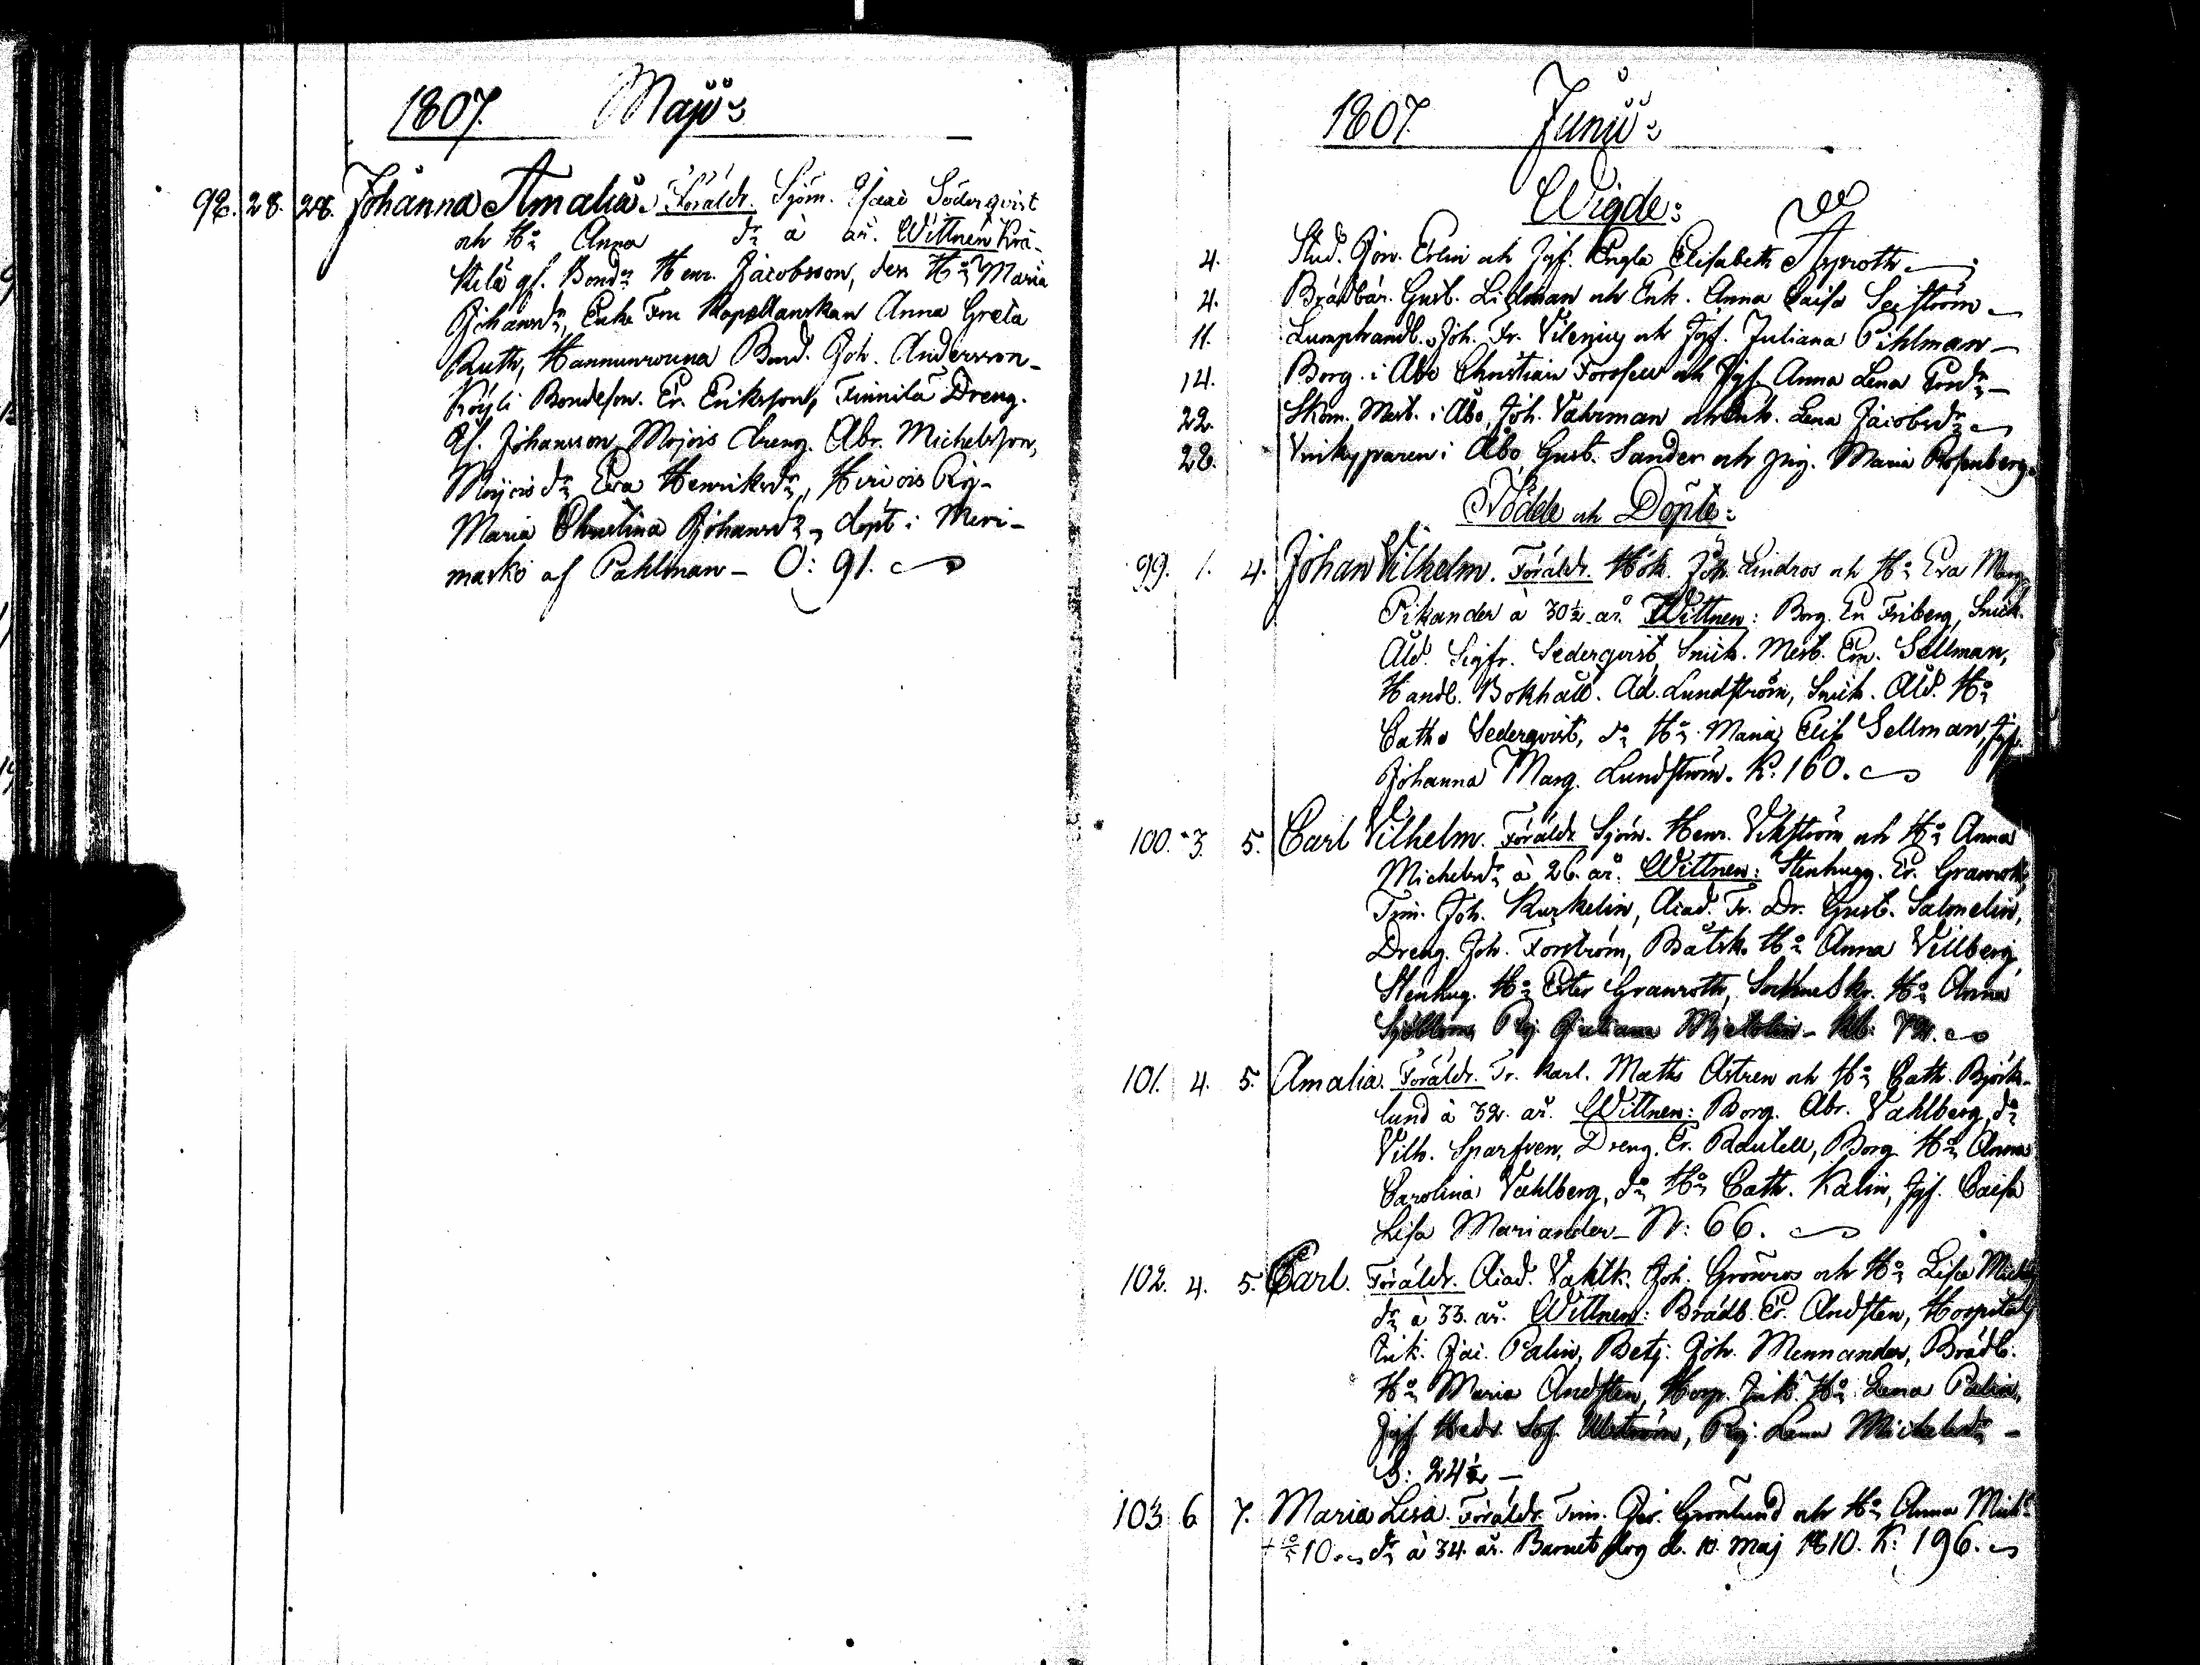 1807. Majus
98. 28. 28. Johanna Amalia. Föräldr. Sjöm. Isaac Söderqvist
och Hu Anna dr à år. Wittnen Krä-
kilä gf. Bond. Henr. Jacobsson, dess Hu Maria
Johansdr, Enke Fru Kapellanskan Anna Greta
Ruth, Hannunrouna Bond. Joh. Andersson
Köyli Bondeson. Er. Eriksson, Finnilä Dreng.
Gf. Johansson, Mojois dreng. Abr. Michelsson,
Mojois dr Eva Henriksdr, Hirvois Pig.
Maria Christina Johansdr, döpt i Meri-
masko af Pahlman - O: 91.
1807. Junius
Wigde:
4. Stud. Jon. Erlin och Jgf. Engla Elisabeth Asproth
4. Brädbär. Gust. Lidman och Enk. Anna Caisa Seeström
11. Lumphandl. Joh. Fr. Vilenius och Jgf. Juliana Pihlman
14. Borg. i Åbo Christian Forssell och Jgf. Anna Lena
22. Skom. Mest. i Åbo, Joh. Vahrman och Enk. Lena Jacobsdr
28. Vinkyparen i Åbo Gust. Sander och pig. Maria Rosenberg.
Födde och Döpte:
99. 1. 4. Johan Vilhelm. Föräldr. Hök. Joh. Lindros och Hu Eva Marg.
Pikander à 30 1/2 år. Wittnen: Borg. Er. Friberg, Snick.
Åld. Sigfr. Sederqvist, Snick. Mest. Em. Sellman,
Handl. Bokhåll. Ad. Lundström, Snick. Åld. Hu
Cath. Sederqvist, do Hu Maria Elis. Sellman, Jgf.
Johanna Marg. Lundström. K: 160.
100. 3. 5. Carl Vilhelm. Föräldr. Sjöm. Henr. Vikström och Hu Anna
Michelsdr à 26. år. Wittnen: Stenhugg. Er. Granroth,
Tim. Joh. Kurkelin, Acad. Tr. Dr. Gust. Salmelin,
Dreng. Joh. Forström, Båtsk. Hu Anna Villberg,
Stenhug. Hu Ester Granroth, Hu Anna
Sjöblom, Pig. Juliana
101. 4. 5. Amalia. Föräldr. Tr. Karl. Maths Astren och Hu Cath. Björk-
lund à 32. år. Wittnen: Borg. Abr. Vahlberg, do
Vilh. Sparfven, Dreng. Er. Rautell, Borg. Hu Anna
Carolina Vahlberg, do Hu Cath. Kalin, Jgf. Caisa
Lisa Mariander - N: 66.
102. 4. 5. Carl. Föräldr. Acad. Vaktk. Joh. Grönroos och Hu Lisa Michels
dr à 33. år. Wittnen: Brädb. Er. Andsten, Hospitals
Jac. Palin, Betj. Joh. Mennander, Brädb.
Hu Maria Andsten, Hosp. Hu Lena Palin,
Jgf. Hedv. Sof. Pig. Lena Michelsdr -
S: 24 1/2 -
103. 6. 7. Maria Lisa. Föräldr. Tim. Gröonlund och Hu Anna Mich:
10. dr à 34. år. Barnet dog d. 10. Maj 1810. K: 196.